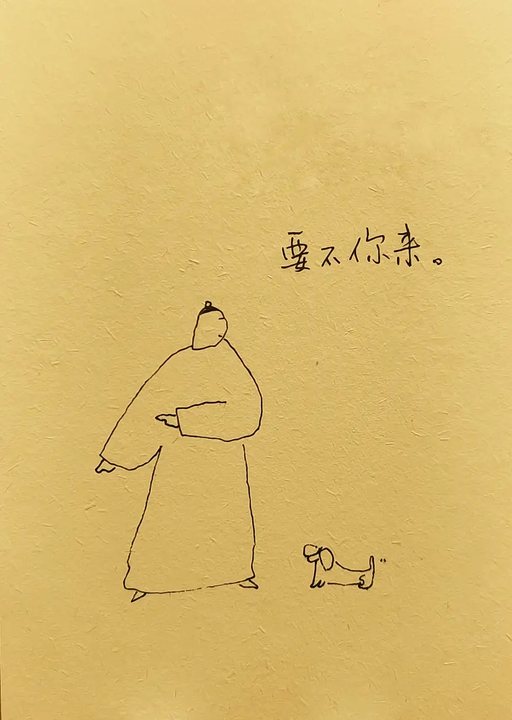 要不你来。